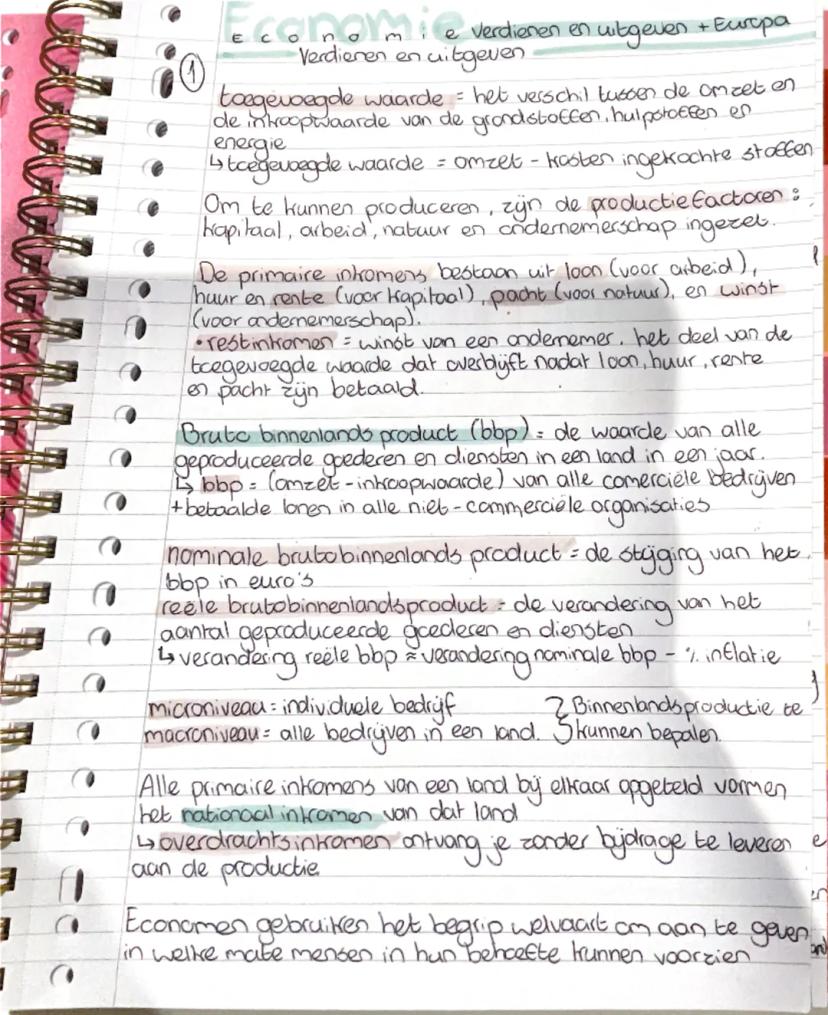 Economie
Economie Verdienen en uitgeven + Europa
Verdienen en uitgeven
1
toegevoegde waarde = het verschil tussen de omzet en
de inkoopwaarde van de grondstoffen, hulpstoffen en
energie
↳ toegevoegde waarde = omzet - kosten ingekochte stoffen
Om te kunnen produceren, zijn de productiefactoren :
kapitaal, arbeid, natuur en ondernemerschap ingezet.
De primaire inkomens bestaan uit loon (voor arbeid),
huur en rente (voor kapitaal), pacht (voor natuur), en winst
(voor ondernemerschap).
• restinkomen = winst van een ondernemer. het deel van de
toegevoegde waarde dat overblijft nadat loon, huur, rente
en pacht zijn betaald.
Bruto binnenlands product (bbp) = de waarde van alle
geproduceerde goederen en diensten in een land in een jaar.
↳ bbp = (omzet - inkoopwaarde) van alle comerciële bedrijven
+ betaalde lonen in alle niet-commerciële organisaties
nominale brutobinnenlands product = de stijging van het
bbp in euro's
reële brutobinnenlandsproduct = de verandering van het
aantal geproduceerde goederen en diensten
↳ verandering reële bbp ≈ verandering nominale bbp - % inflatie
microniveau = individuele bedrijf } Binnenlandsproductie te
macroniveau = alle bedrijven in een land. } kunnen bepalen.
Alle primaire inkomens van een land bij elkaar opgeteld vormen
het nationaal inkomen van dat land
↳ overdrachtsinkomen ontvang je zonder bijdrage te leveren
aan de productie.
Economen gebruiken het begrip welvaart om aan te geven
in welke mate mensen in hun behoefte kunnen voorzien